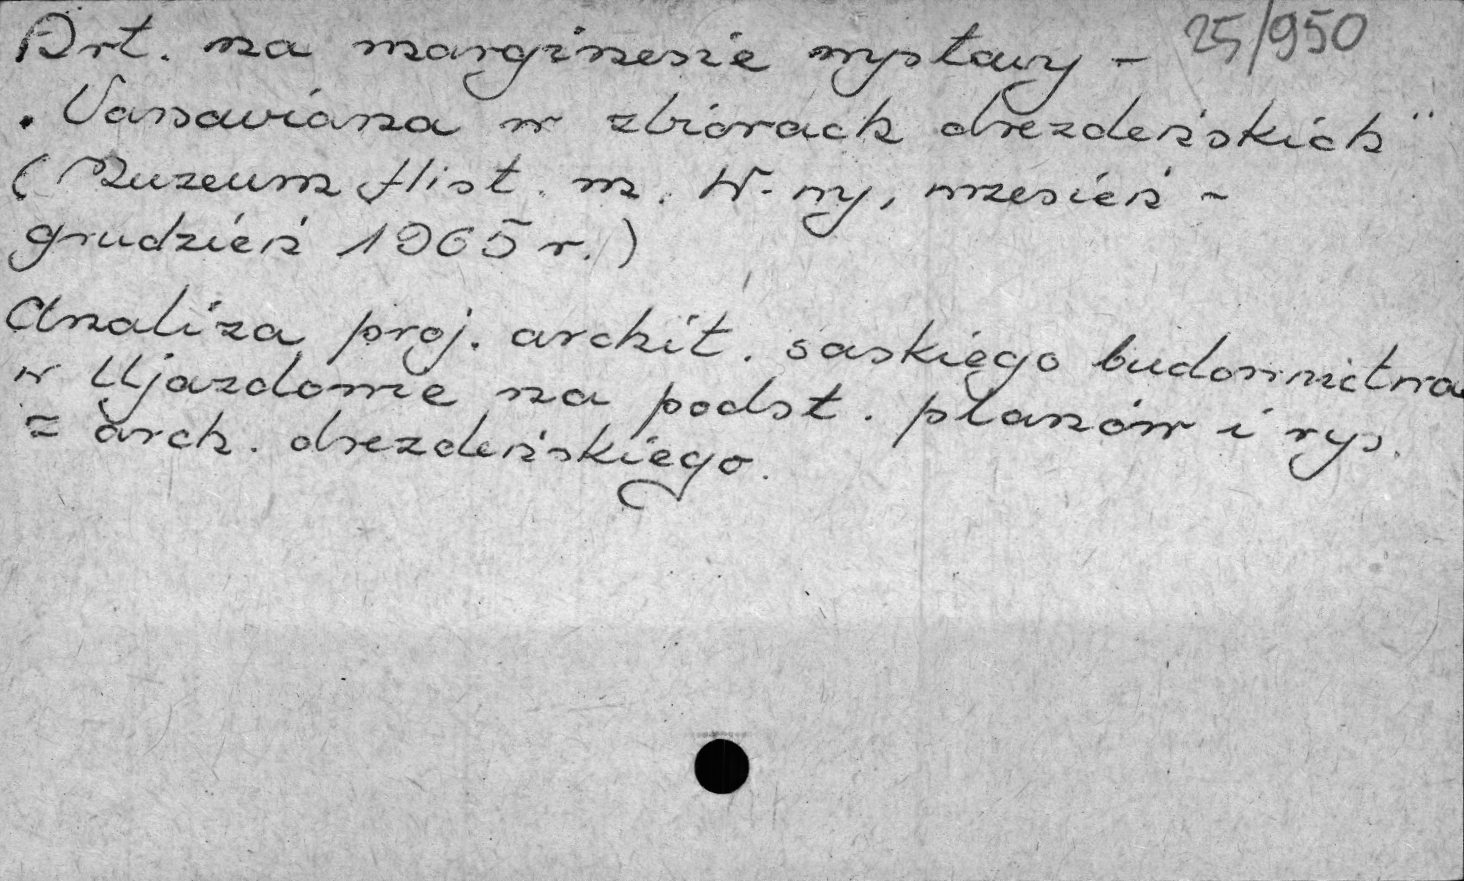 25/950
Art. na marginesie wystawy -
"Varsaviana w zbiorach drezdeńskich"
(Muzeum Hist. m. W-wy, wrzesień -
grudzień 1965 r.)
Analiza proj. archit. saskiego budownictwa
w Ujazdowie na podst. planów i rys.
z arch. drezdeńskiego.